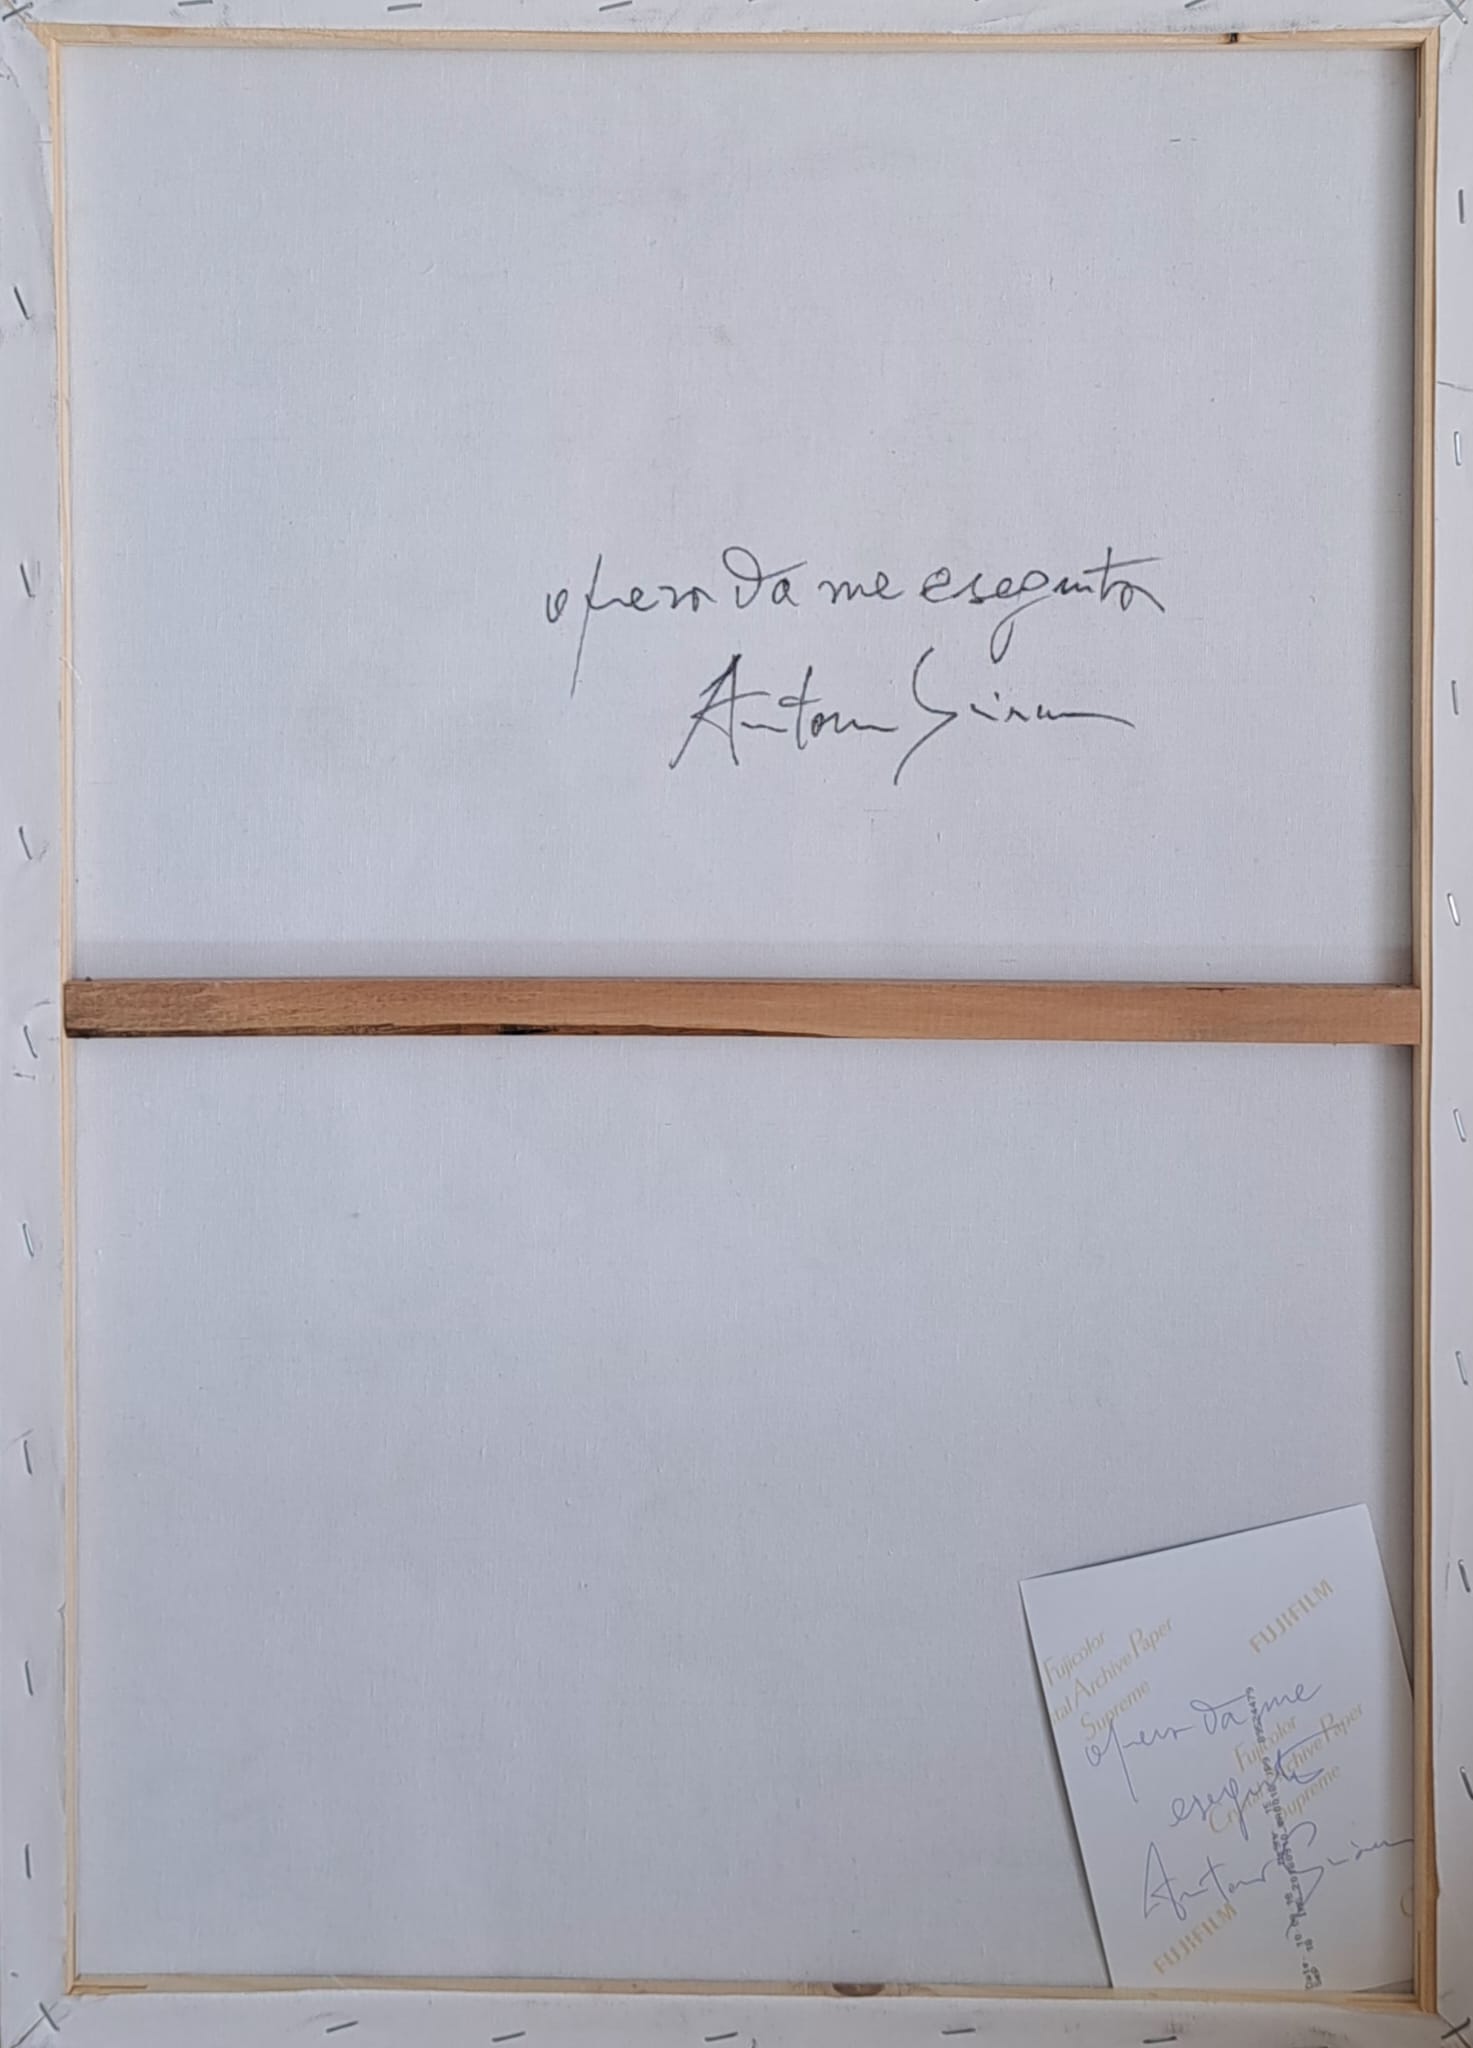 opera da me eseguita
Antonio
FUJIFILM
Fujicolor
Archive Paper
Supreme
opera da me
Fujicolor
Archive Paper
eseguita
Supreme
Antonio
FUJIFILM